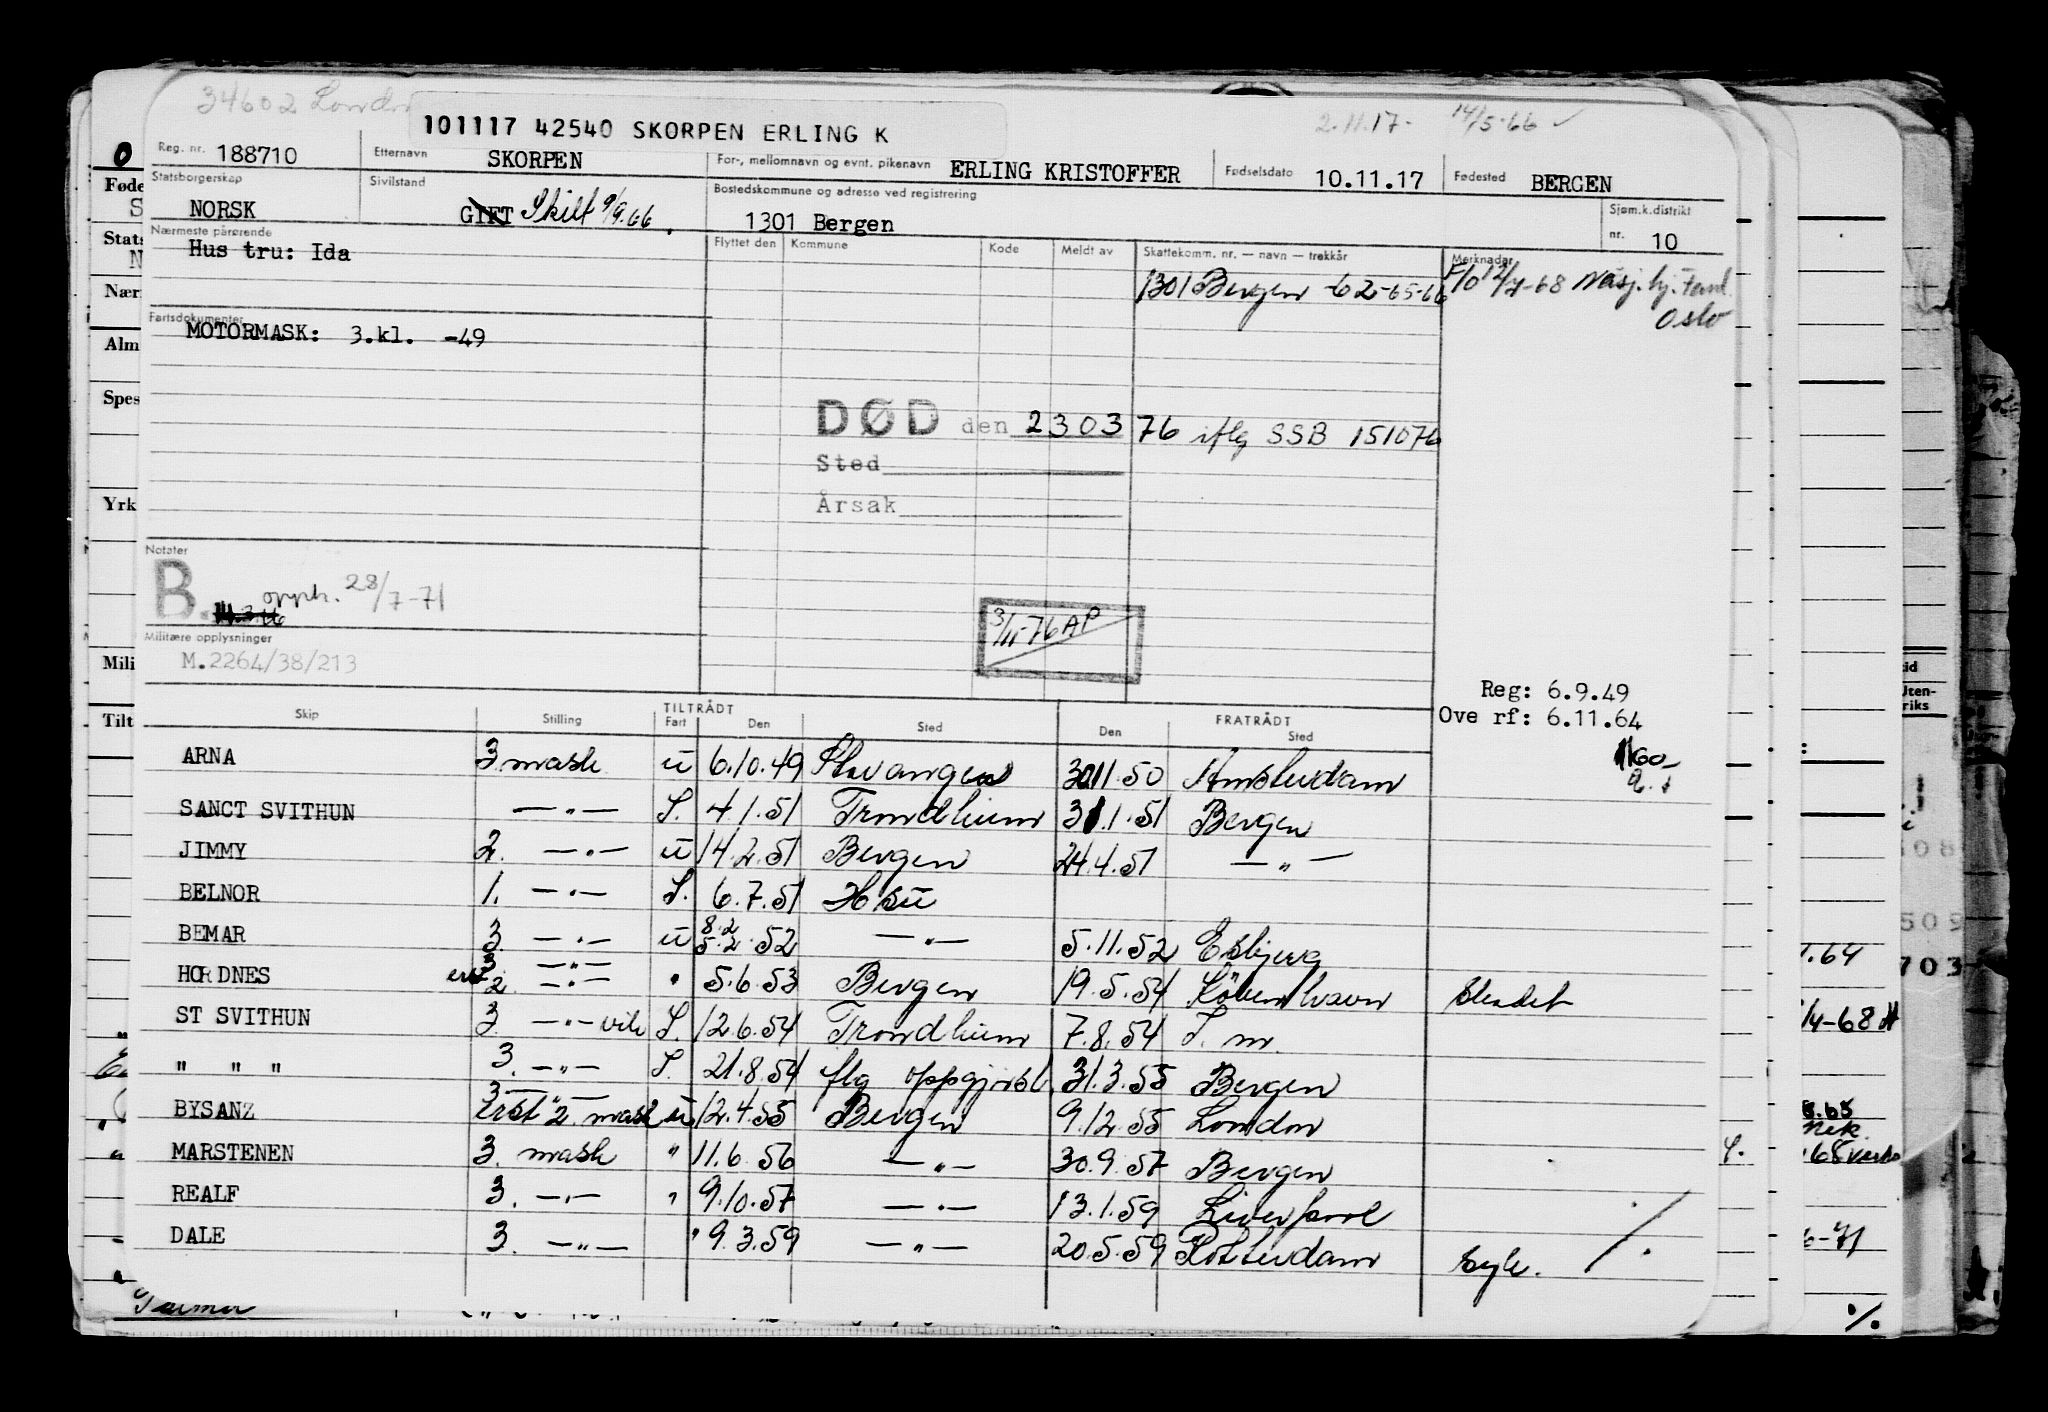 34602 London
101117 42540 SKORPEN ERLING K
2.11.17. 14/5-66
Reg. nr. 188710 Etternavn SKORPEN For-, mellomnavn og evnt. pikenavn ERLING KRISTOFFER Fødselsdato 10.11.17 Fødested BERGEN
Statsborgerskap NORSK Sivilstand GIFT Skilt 9/9.66. Bostedskommune og adresse ved registrering 1301 Bergen Sjøm.k.distrikt nr. 10
Nærmeste pårørende Hus tru: Ida
Flyttet den Kommune Kode Meldt av Skattekomm. nr. — navn — trekkår Merknader
1301 Bergen -62-65-66
F/O 12/7-68 Nasj. hj. Forb. Oslo
Fartsdokumenter
MOTORMASK: 3.kl. -49
DØD den 230376 iflg SSB 151076
Sted
Årsak
Notater
B. opph. 28/7-71
3/11-76 AP
Militære opplysninger
M.2264/38/213
Reg: 6.9.49
Ove rf: 6.11.64
Skip Stilling TILTRÅDT Fart Den Sted FRATRÅDT Den Sted
ARNA 3. mask ū 6.10.49 Stavanger 30.11.50 Amsterdam
SANCT SVITHUN — " — S. 4.1.51 Trondheim 31.1.51 Bergen
JIMMY 2. — " — ū 14.2.51 Bergen 24.4.51 — " —
BELNOR 1. — " — S. 6.7.51 H sū
BEMAR 3. — " — ū 8.2 5.2.52 — " — 5.11.52 Esbjerg
HORDNES 3. — " — 2. — " — " 5.6.53 Bergen 19.5.54 København skadet
ST SVITHUN 3. — " — vik S. 12.6.54 Trondheim 7.8.54 S. m.
" " " 3. — " — S. 21.8.54 flg oppgjørsl. 31.3.55 Bergen
BYSANZ 3 — " — erst 2 mask ū 12.4.55 Bergen 9.12.55 London
MARSTENEN 3. mask " 11.6.56 — " — 30.9.57 Bergen
REALF 3. — " — " 9.10.57 — " — 13.1.59 Liverpool
DALE 3. — " — " 9.3.59 — " — 20.5.59 Rotterdam syk.